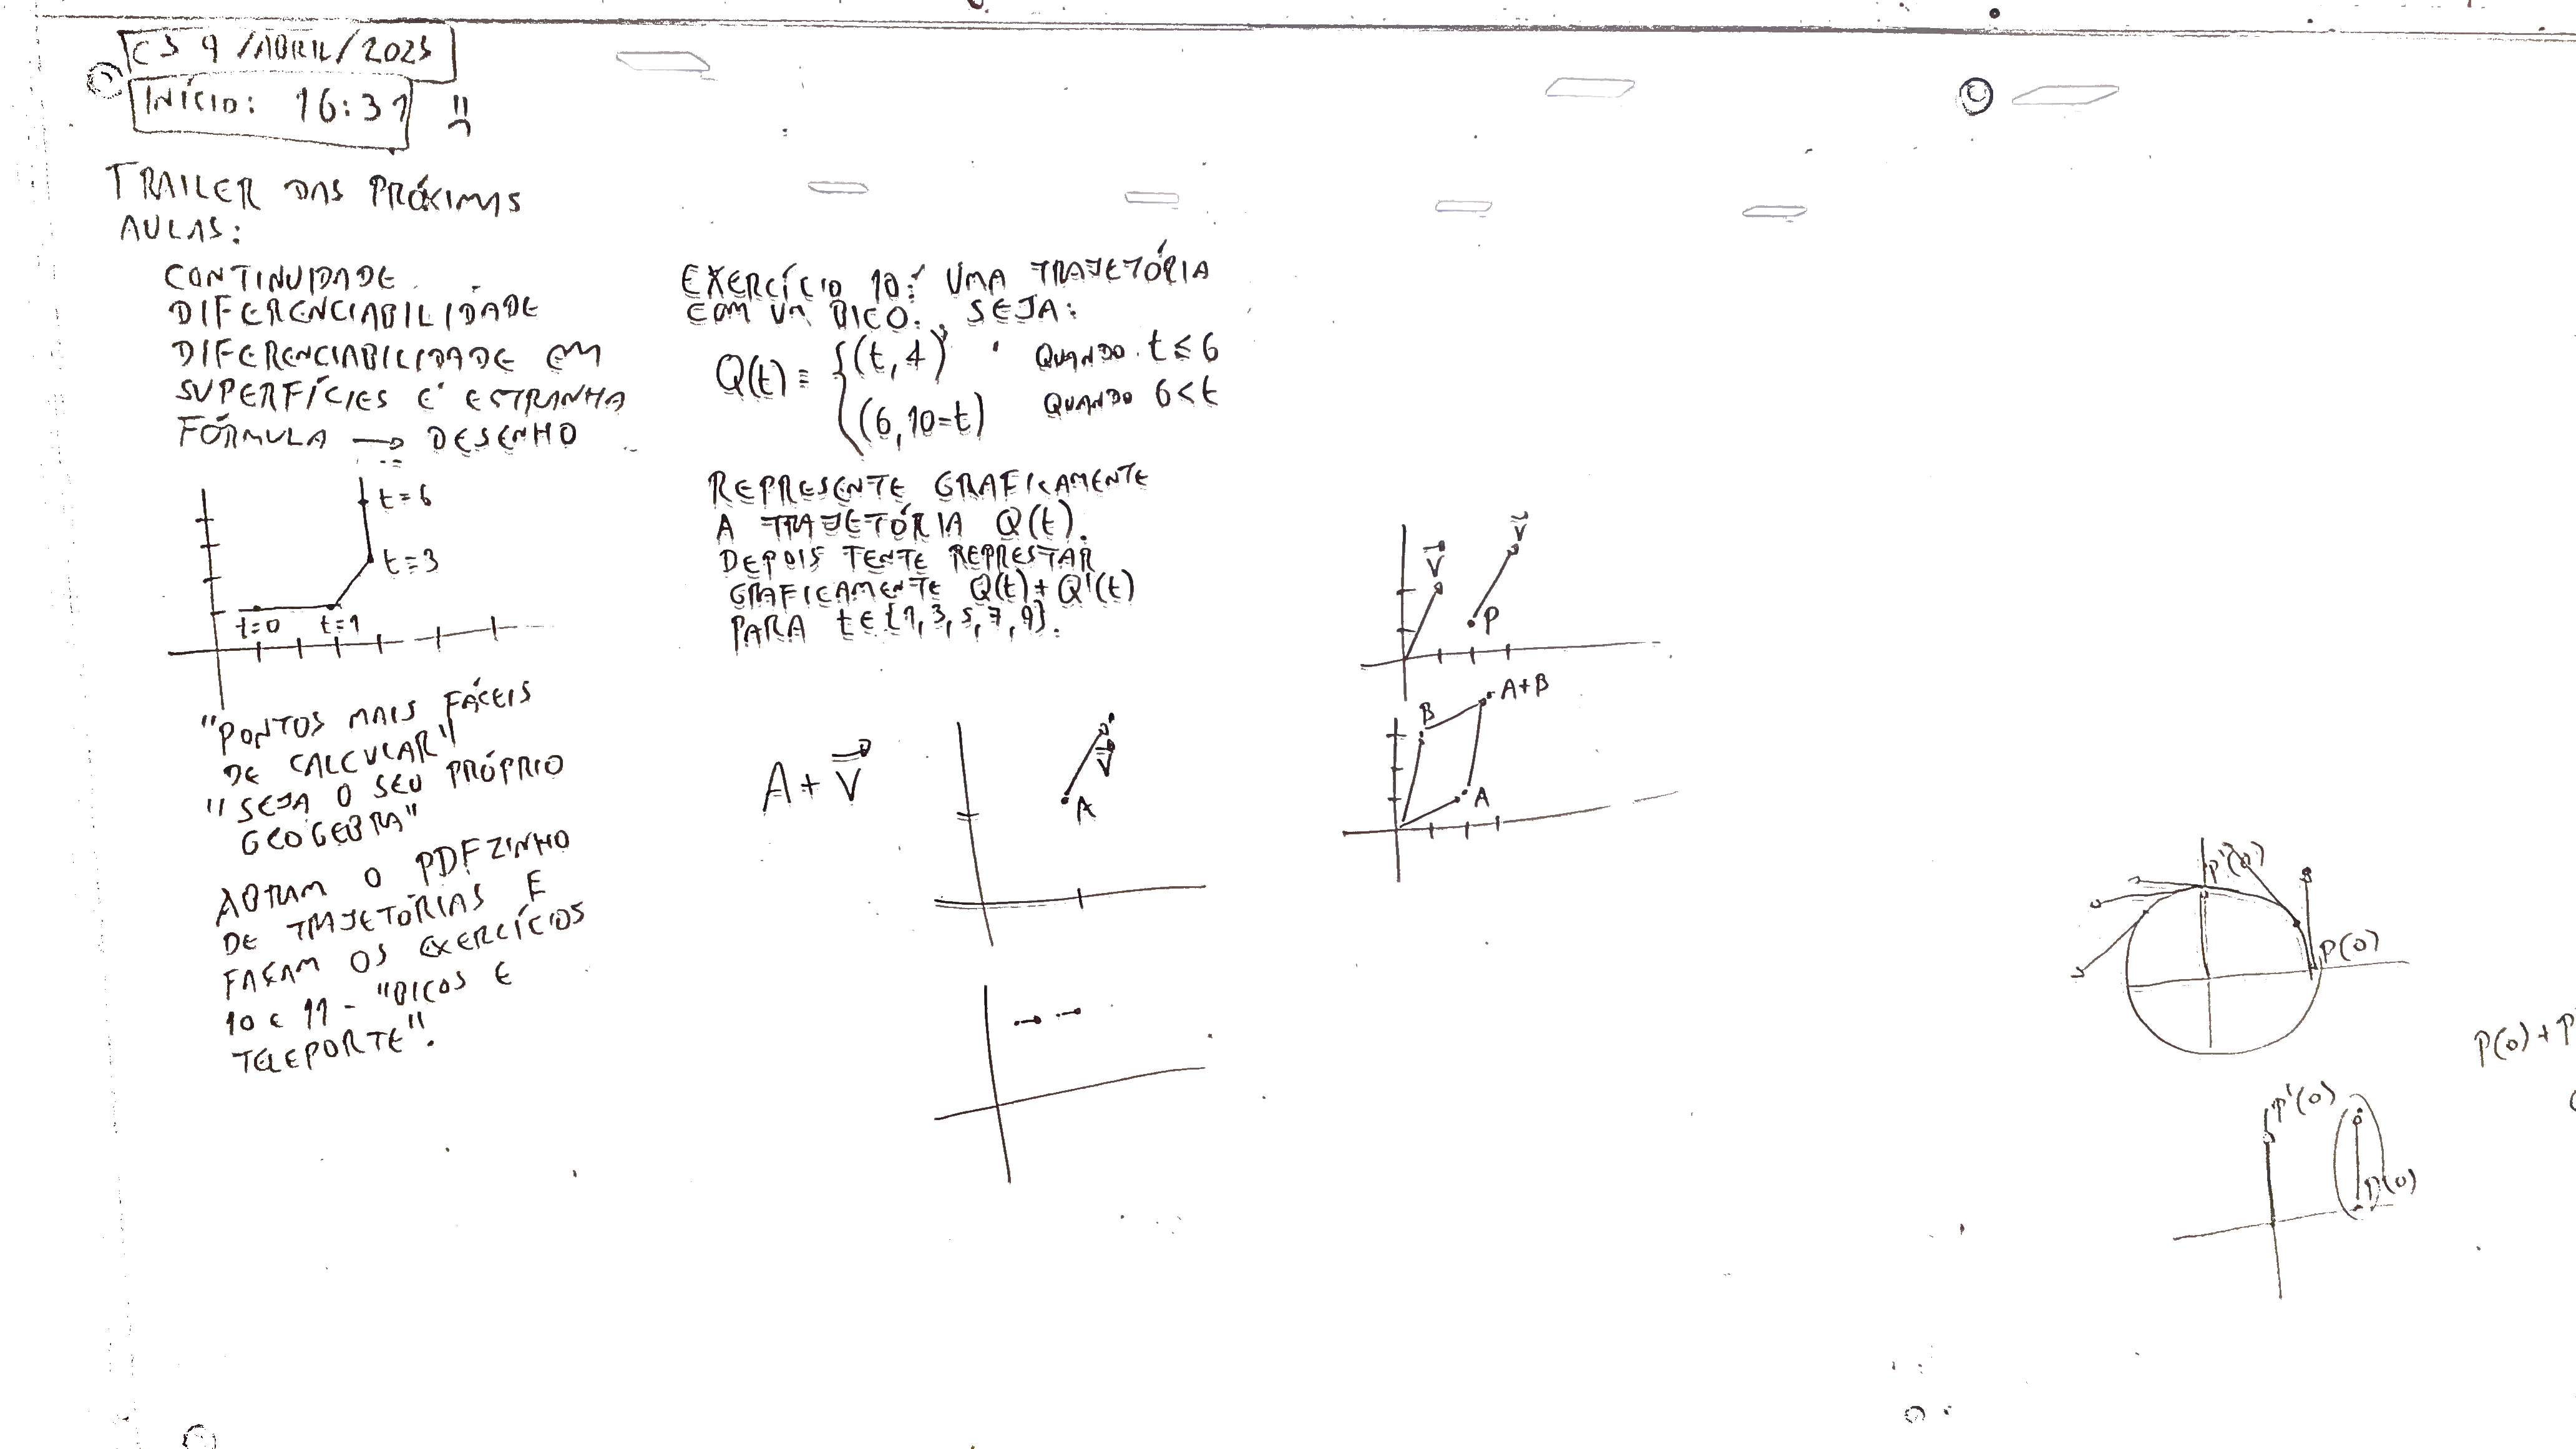 C3 9/ABRIL/2025
INÍCIO: 16:31
TRAILER DAS PRÓXIMAS
AULAS:
CONTINUIDADE
DIFERENCIABILIDADE
DIFERENCIABILIDADE EM
SUPERFÍCIES É ESTRANHA
FÓRMULA → DESENHO
t=6
t=3
t=0 t=1
"PONTOS MAIS FÁCEIS
DE CALCULAR"
"SEJA O SEU PRÓPRIO
GEOGEBRA"
ABRAM O PDFZINHO
DE TRAJETÓRIAS E
FAÇAM OS EXERCÍCIOS
10 E 11 - "BICOS E
TELEPORTE".
EXERCÍCIO 10: UMA TRAJETÓRIA
COM UM BICO. SEJA:
Q(t) = { (t, 4) QUANDO t ≤ 6
(6, 10-t) QUANDO 6 < t
REPRESENTE GRAFICAMENTE
A TRAJETÓRIA Q(t).
DEPOIS TENTE REPRESTAR
GRAFICAMENTE Q(t)+Q'(t)
PARA t∈{1,3,5,7,9}.
A + v⃗
v⃗
A
v⃗
v⃗
P
A+B
B
A
P'(0)
P(0)
P(0)+P
P'(0)
P(0)